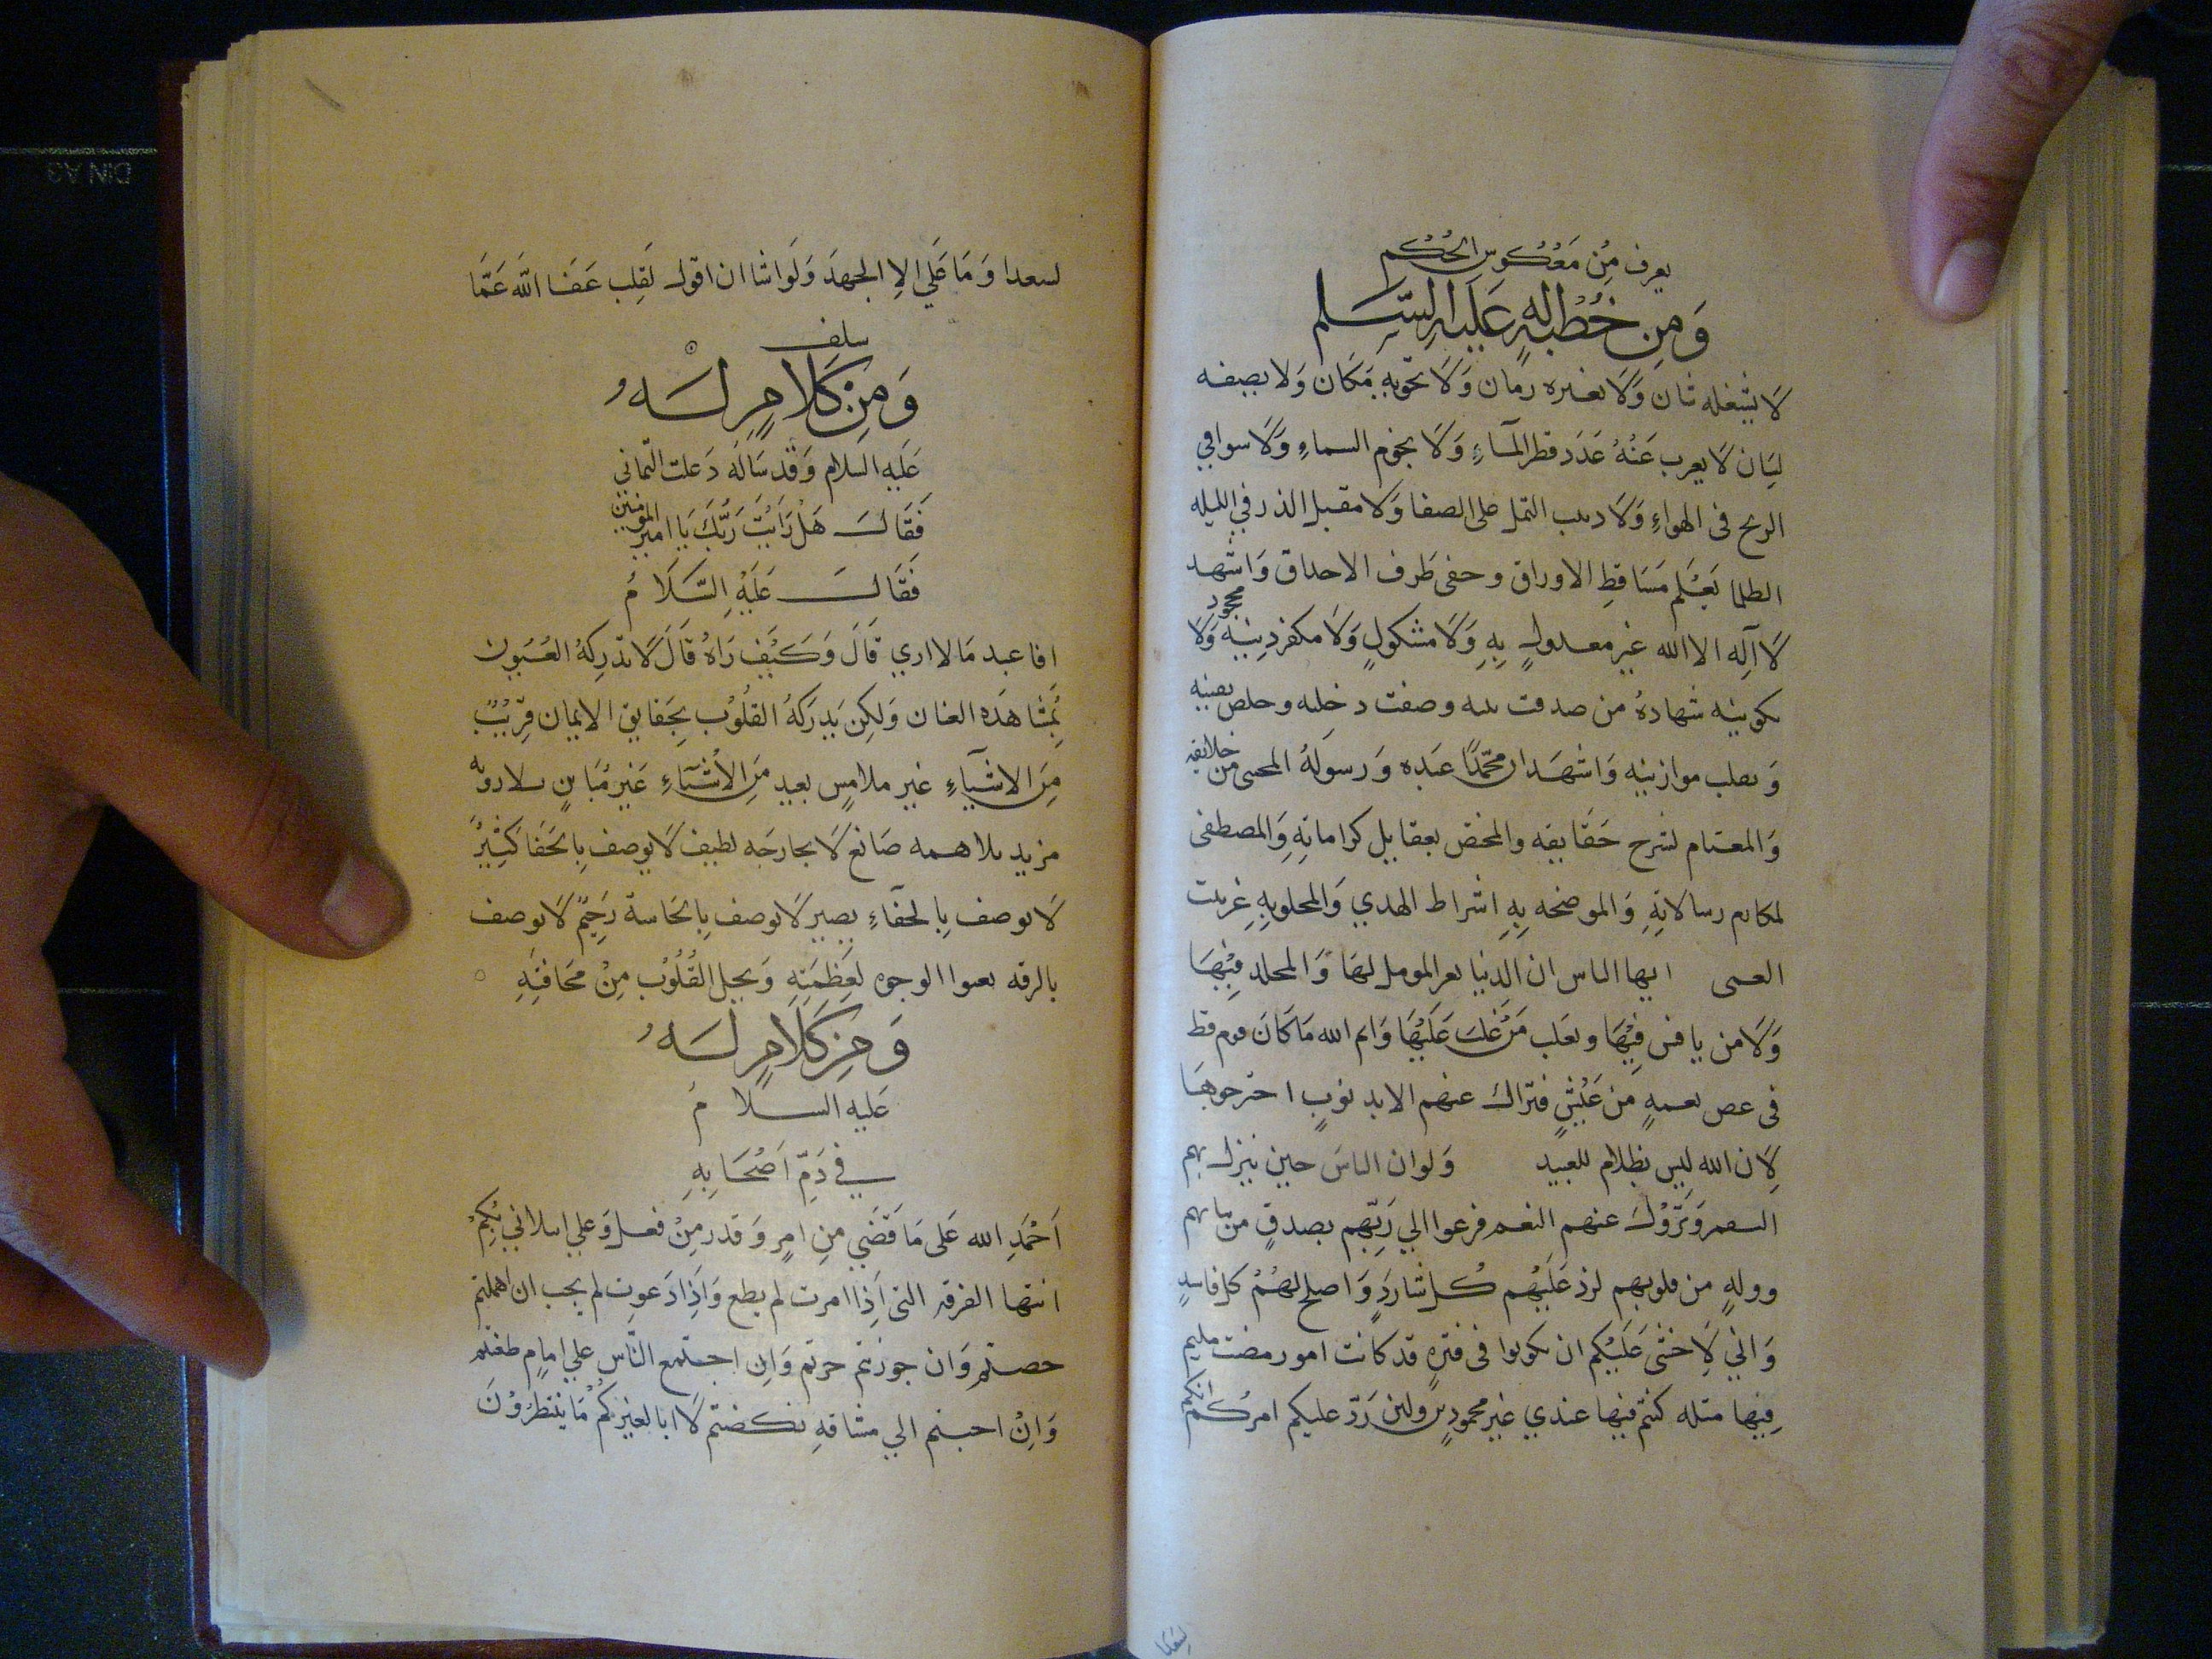 يعرف مِنْ مَعْكُوسِ الحُكْم
وَمِن خُطْبَةٍ لَه عَلَيهِ السَّلم
لَا يشْغله شان وَلَا يغيره زمان وَلَا يحَويه مَكَان وَلا يصفه
لِسَان لَا يعرب عَنْهُ عَدَد قطر المَآءِ وَلَا نجوم السماءِ وَلَا سوافي
الريح فى الهواءِ وَلَا دبيب النمل على الصفا وَلَا مقيل الذر في الليله
الظلما يَعْلَم مَسَاقطِ الاوراق وخفى طَرف الاحداق وَاشهد
لَا آلِه الا الله غير معدولٍ بِهِ وَلَا مشكولٍ وَلَا مكفر دِينه وَلَا مجحود
تكوينه شهادهُ من صدقت نيته وصفت دخلته وخلص يقينه
وَثقلت موازينه وَاشهَد ان محَمّدًا عَبده وَرسوله المجتبى من خلايقه
وَالمعتام لشرح حَقَايقه والمختص بعقايل كراماتِهِ وَالمصطفى
لمكارم رسالاتِهِ وَالموضحه بِهِ اشراط الهدي وَالمجلو بِهِ غربيت
العمى ايها الناس ان الدنيا تغر المومل لهَا وَالمخلد فِيْهَا
وَلَا من ينافس فِيْهَا وتغلب مَنْ غلبَ عَلَيْهَا وَايم الله مَا كَانَ قوم قط
فى غض نعمهٍ مِن عَيْشٍ فتزالَ عنهم الا بذنوبٍ اجترحوهَا
لِان الله ليس بظلام للعبيد وَلوان الناسَ حين ينزل بهم
النقم وَتَزُوْلَ عنهم النعم فزعوا الي رَبّهم بصدقٍ من نياتهم
وولهٍ من قلوبهم لرد عَلَيْهم كُل شاردٍ وَاصلح لهُمْ كل فاسدٍ
وَاني لَاخشى عَلَيْكم ان تكونوا فى فترهٍ قد كانت امور مضت ملتم
فِيها ميله كنتم فيها عندي غير محمودين ولئن رَدّ عليكم امركُم انكم
لسعدا
لسعدا وَمَا عَلَي الا الجهدَ وَلَو اشا ان اقول لَقِلت عَفَا اللّه عَمَّا
سلف
وَمِن كَلَامٍ لَهُ
عَلَيه السلام وَقَد سَالَهُ دعلب اليماني
فَقَالَ هَلْ رَايْتَ رَبَّكَ يَا امير المومنين
فَقَالَ عَلَيْهِ السَّلَامُ
افاعبد مَا لا اري قَالَ وَكَيْفَ تراهُ قَالَ لَا تدْرِكهُ العُيُون
بِمُشَاهدَه العيان وَلكِن يَدركهُ القلُوْب بِحَقايق الايمان قَرِيْبٌ
مِنَ الاشيآءِ غير ملامسٍ بعيد مِنَ الاشيآءِ غَير مُبَاينٍ متكلم بلا رويه
مريد بلا همه صَانع لَا بجارحَه لطيف لَا يوصف بِالخفا كَبيرٌ
لَا يوصف بِالجفآءِ بصير لَا يوصف بِالحَاسه رَحِيْمٌ لَا يوصف
بالرقه تعنوا الوجوه لِعَظَمَتِهِ وَتجل القُلُوْب مِنْ مخَافتِهِ
وَمِن كَلَامٍ لَهُ
عَلَيه السلامُ
فِي ذَمّ اَصْحَابِهِ
اَحْمَدِ الله عَلَى مَا قَضَي مِن امرٍ وَقدر مِنْ فعل وَعلي ابتلاني بكُمْ
ايتها الفرقه التى اِذا امرت لم يطع وَاِذا دَعوت لم يجب ان اهملتم
خضتم وَان حوربتم خرتم وَاِن اجتمع النّاس علي امامٍ طعنتم
وَاِنْ اجبتم الي مشاقهِ نكصتم لَا ابا لغيركُمْ مَا ينتظرُوْنَ